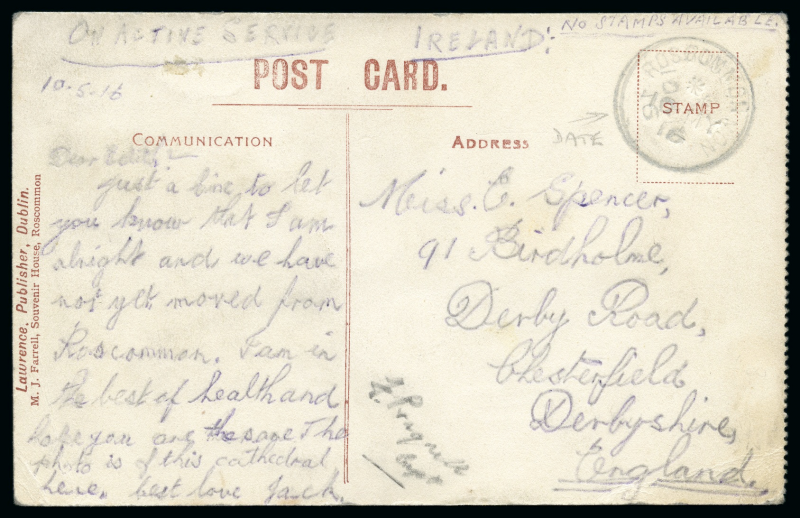 ON ACTIVE SERVICE
IRELAND:
NO STAMPS AVAILABLE.
10-5-16
POST CARD.
STAMP
ROSCOMMON
COMMUNICATION
ADDRESS
DATE
Dear Edith
Just a line to let
you know that I am
alright and we have
not yet moved from
Roscommon. I am in
the best of health and
hope you are the same The
photo is of this cathedral
here. best love Jack.
Miss. E. Spencer,
91 Birdholme,
Derby Road,
Chesterfield
Derbyshire,
England.
Lawrence, Publisher, Dublin.
M. J. Farrell, Souvenir House, Roscommon